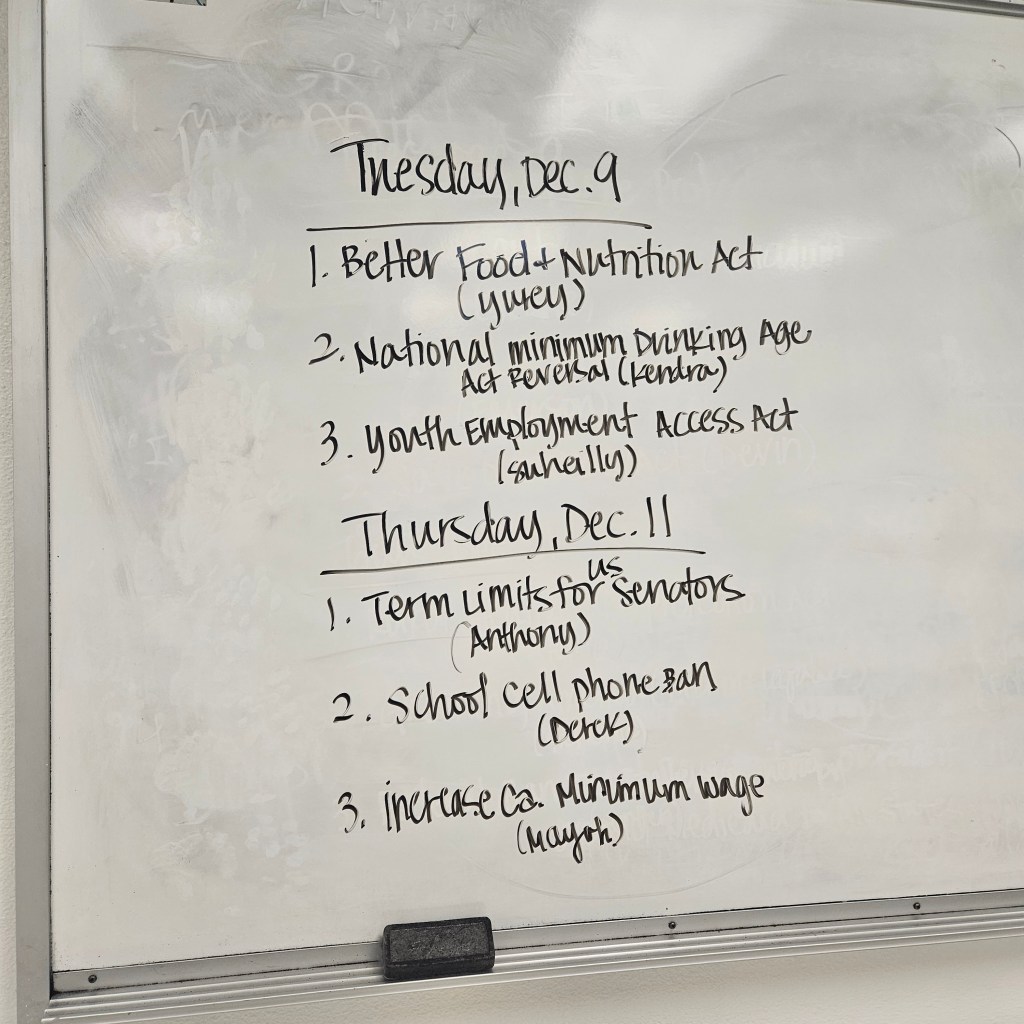 Tuesday, Dec. 9
1. Better Food + Nutrition Act
2. National minimum Drinking Age
Act Reversal (Kendra)
3. Youth Employment Access Act
(Suheilly)
Thursday, Dec. 11
us
1. Term Limits for Senators
(Anthony)
2. School cell phone Ban
(Derek)
3. increase Ca. Minimum wage